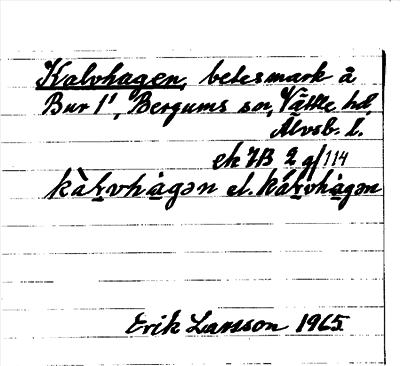 Kalvhagen, betesmark å
Bur 1¹, Bergums sn, Vättle hd,
Älvsb. l.
ek JB 2 g/114
kàl̠vha̠gən el. kál̠vhàgən
Erik Larsson 1965